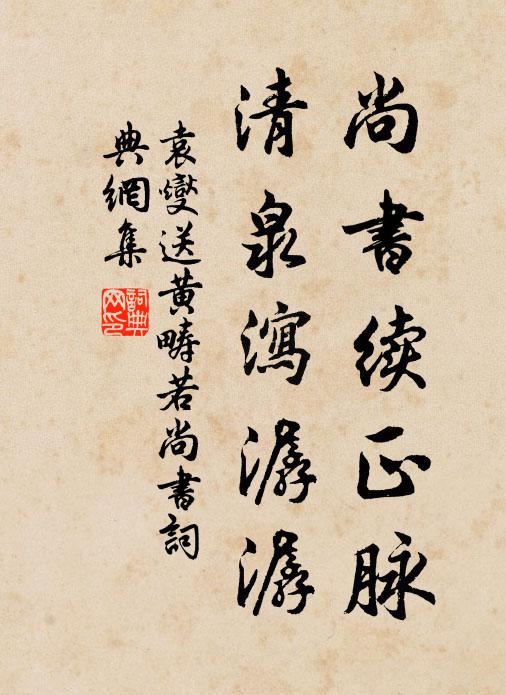 尚書续正脉
清泉瀉潺潺
袁燮送黄畴若尚書詞
典網集
詞典网印